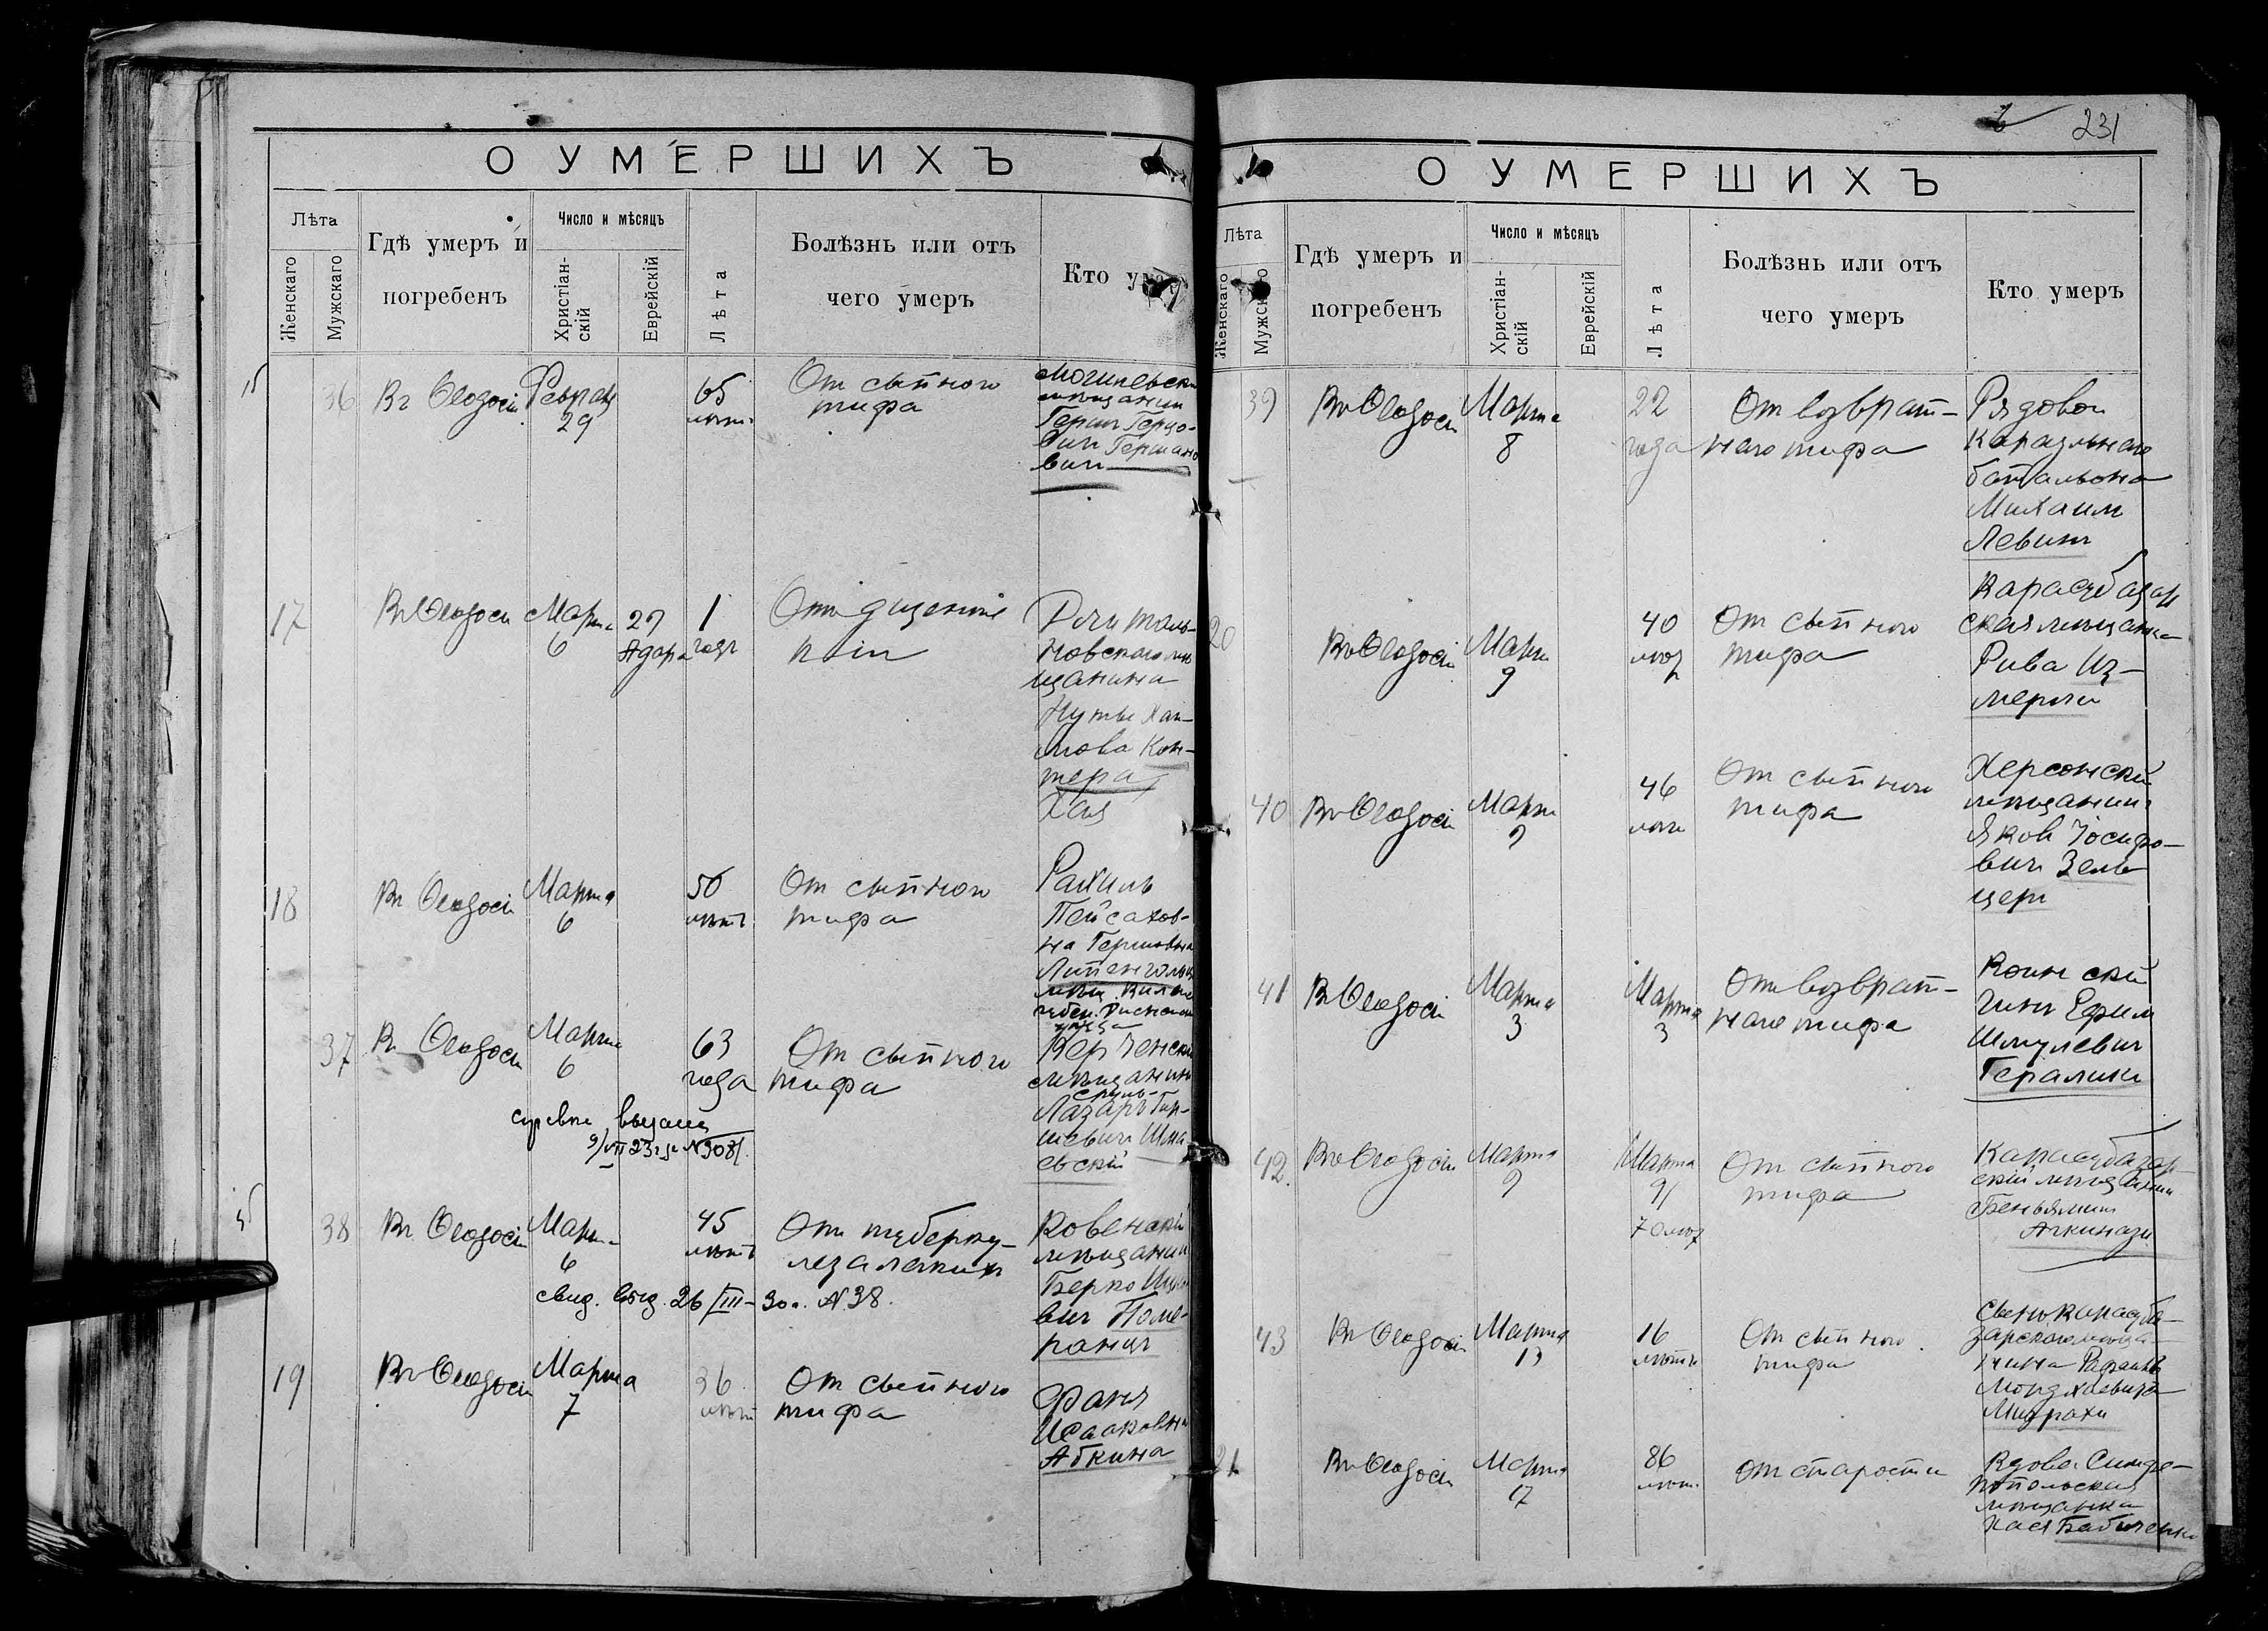 О УМЕРШИХЪ
Лѣта
Женскаго
Мужскаго
Гдѣ умеръ и
погребенъ
Число и мѣсяцъ
Христіан-
скій
Еврейскій
Лѣта
Болѣзнь или отъ
чего умеръ
Кто
36
Въ Ѳеодосіи
29
65
лѣтъ
От сыпного
тифа
Герш Герцо-
вич Германо
вич
17
Въ Ѳеодосіи
Марта
6
Адара
1
годъ
Дочь
новского мѣ
щанина
Хая
18
Въ Ѳеодосіи
Марта
6
50
лѣтъ
От сыпного
тифа
Рахиль
Пейсахов-
на Гершовна
37
В Ѳеодосіи
Марта
6
63
года
От сыпного
тифа
Керченскій
мѣщанинъ
Лазарь Гир-
шевичъ
38
Въ Ѳеодосіи
Марта
6
45
лѣтъ
От туберку-
леза легких
Ковенскій
мѣщанин
Берко
вич Поме-
ранцъ
свид. выд. 26/III-30 г. N 38.
19
Въ Ѳеодосіи
Марта
7
36
лѣтъ
От сыпного
тифа
Фаня
Исааковна
Абкина
231
О УМЕРШИХЪ
Лѣта
Женскаго
Гдѣ умеръ и
погребенъ
Число и мѣсяцъ
Христіан-
скій
Еврейскій
Лѣта
Болѣзнь или отъ
чего умеръ
Кто умеръ
39
Въ Ѳеодосіи
Марта
8
22
года
От возврат-
наго тифа
Рядовой
Караульнаго
батальона
Михаил
Левин
20
Въ Ѳеодосіи
Марта
9
40
лѣт
От сыпного
тифа
Карасубазар
ская мѣщанка
Рива Из-
мерли
40
Въ Ѳеодосіи
Марта
9
46
лѣтъ
От сыпного
тифа
Херсонскій
мѣщанинъ
Яков Іосифо-
вич Зель
церъ
41
Въ Ѳеодосіи
Марта
3
Марта
3
От возврат-
наго тифа
Воинскій
чинъ Ефим
Шмулевич
42
Въ Ѳеодосіи
Марта
9
Марта
9
70 лѣт
От сыпного
тифа
Карасубазар
скій мѣщанин
Беньямин
Ашкинази
43
Въ Ѳеодосіи
Марта
13
16
лѣтъ
От сыпного
тифа
Сынъ Карасуба-
зарского мѣща-
нина Рафаила
Мордхаевича
Мизрахи
21
Въ Ѳеодосіи
Марта
17
86
лѣт
От старости
Вдова Симфе-
ропольская
мѣщанка
Хася